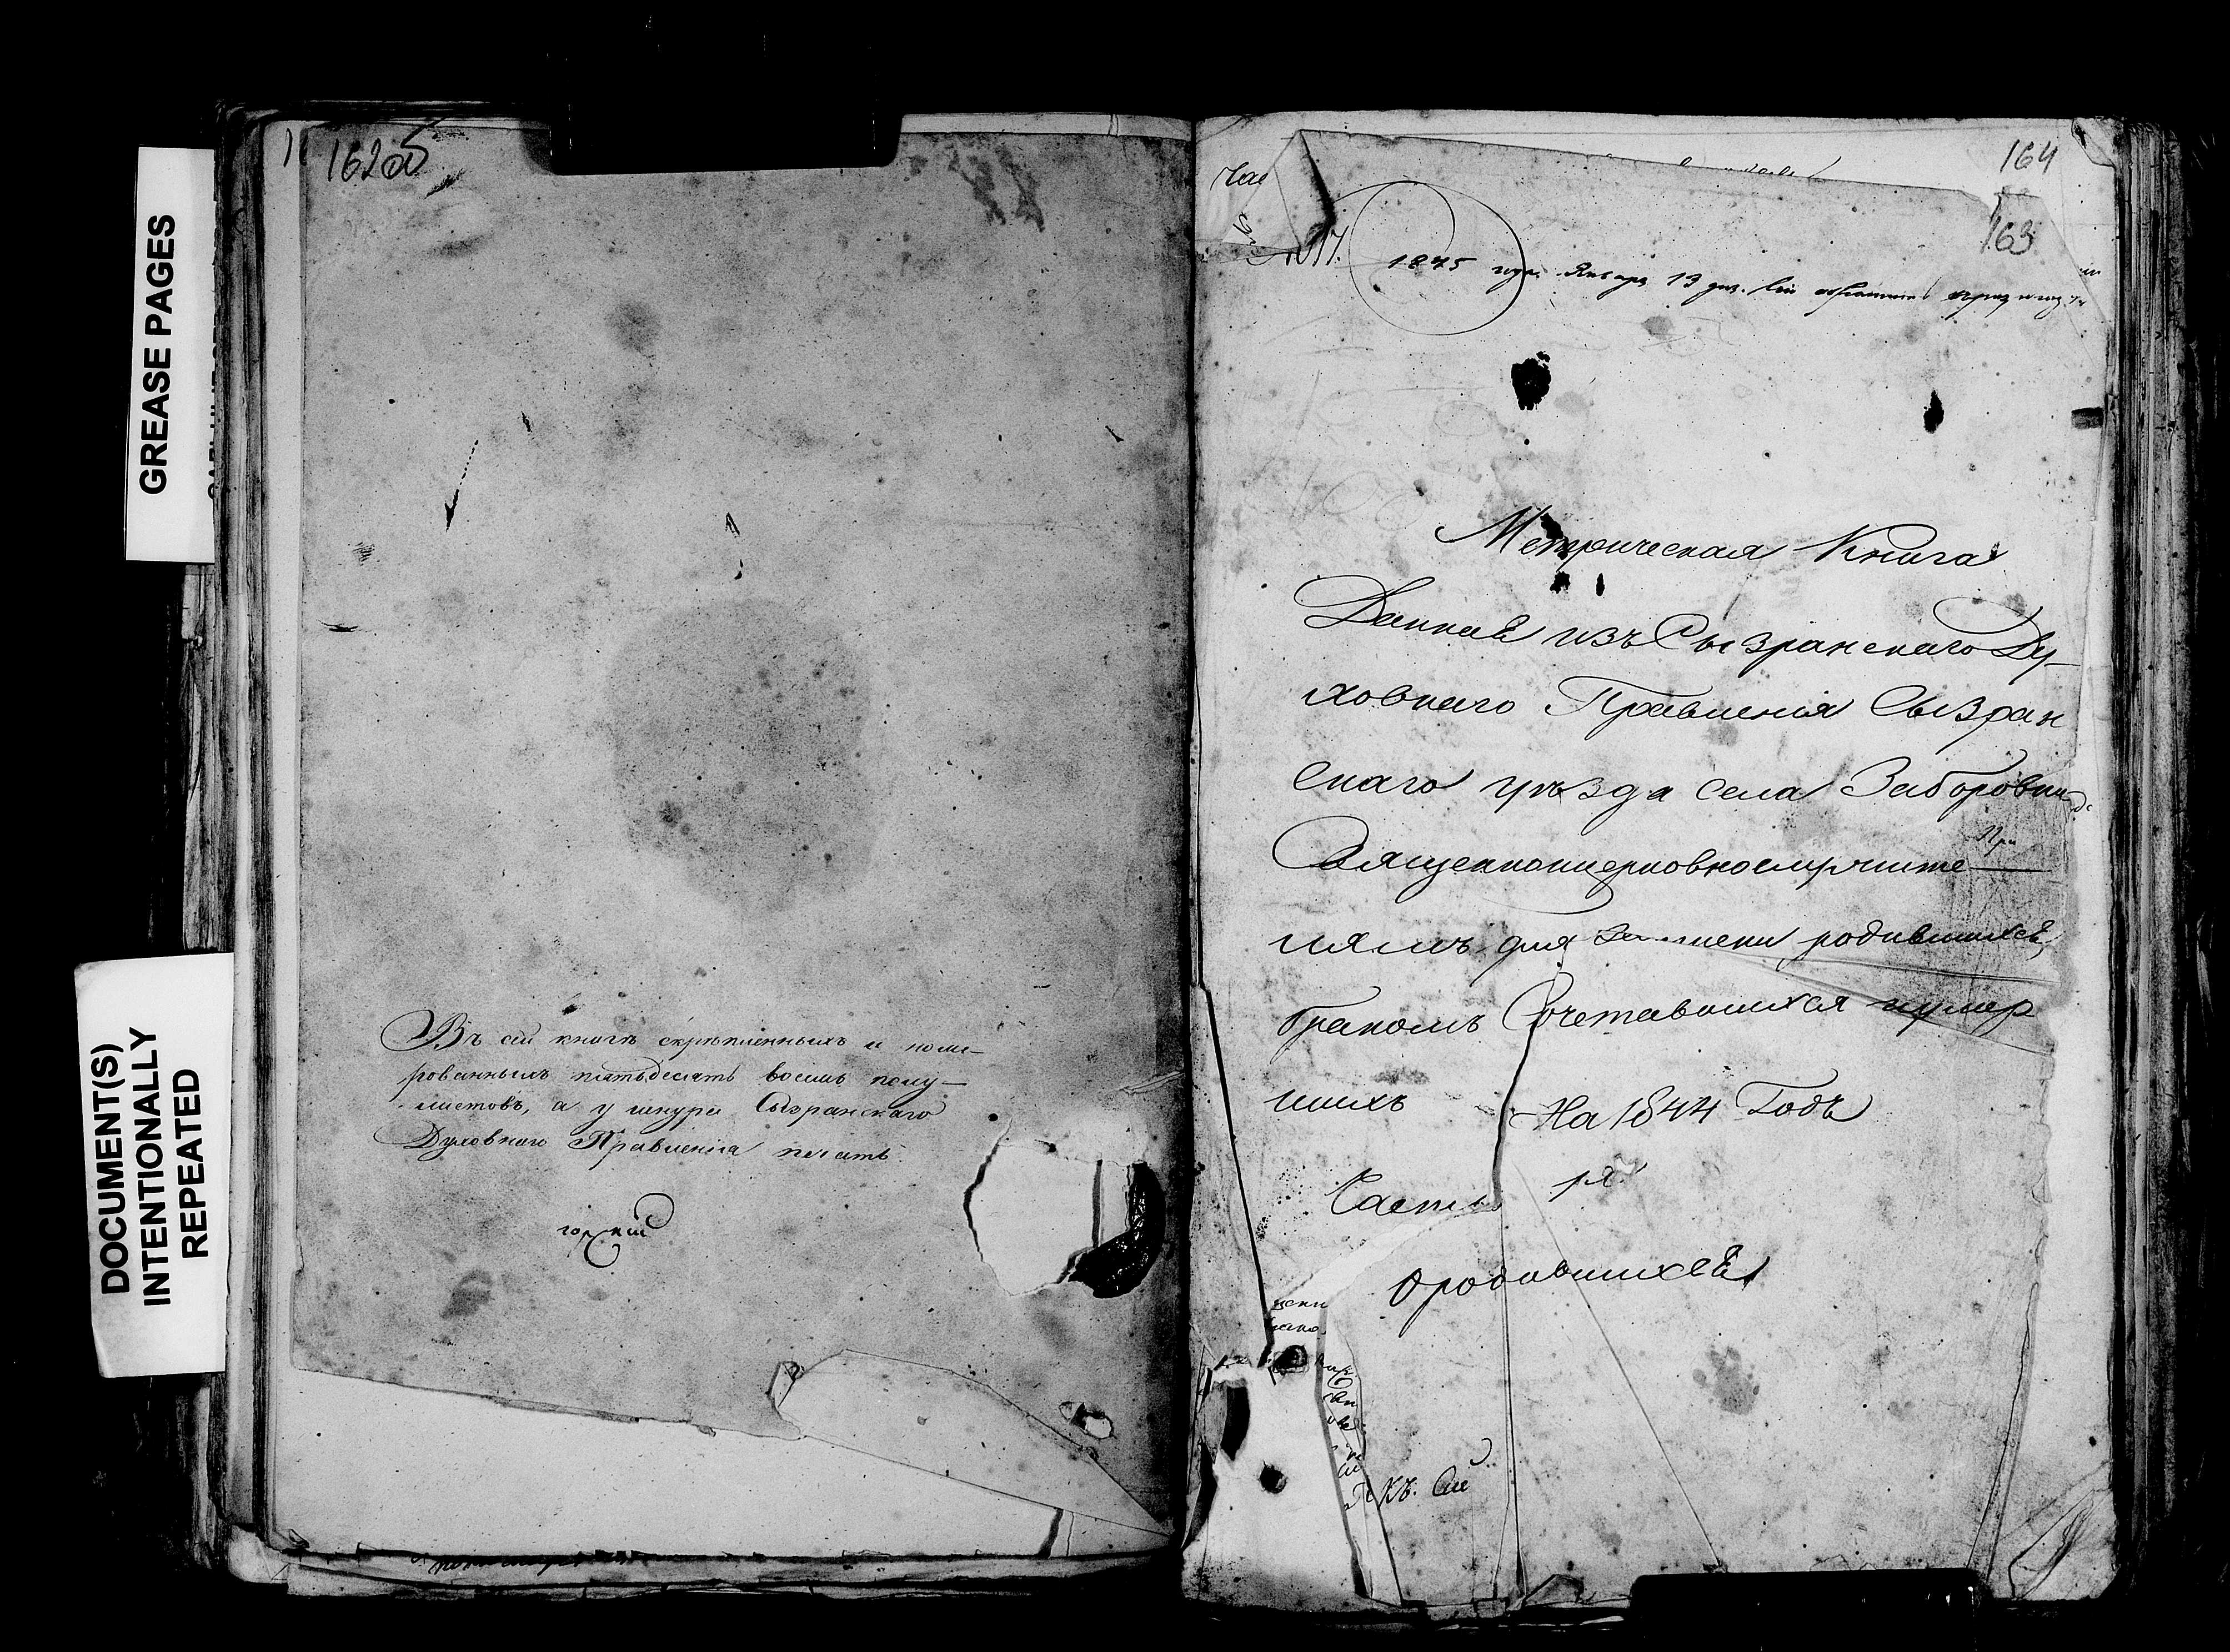 GREASE PAGES
DOCUMENT(S)
INTENTIONALLY
REPEATED
162об
Въ сей книгѣ скрѣпленныхъ и номе-
рованныхъ пятьдесятъ восемь полу-
листовъ, а у шнура Сызранскаго
Духовнаго Правленія печать.
горскій
164
163
1845 года Января 19 дня.
Метрическая Книга
Данная изъ Сызранскаго Ду-
ховнаго Правленія Сызран
скаго уѣзда села Заборовки
Священноцерковнослужите
лямъ для записки родившихся,
бракомъ Сочетавшихся и умер
шихъ
На 1844 Годъ
Часть 1я.
О родившихся
Къ. Сей